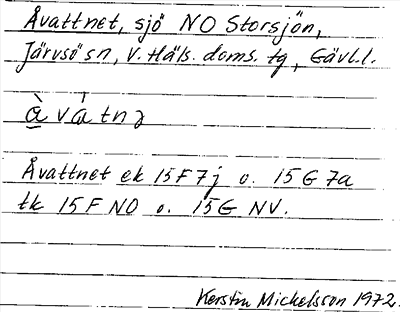 Åvattnet, sjö NO Storsjön,
Järvsö sn, V. Häls. doms. tg, Gävl.l.
à̱ v á tn
Åvattnet ek 15 F 7 j o. 15 G 7a
tk 15 F NO o. 15 G NV.
Kerstin Mickelsson 1972.